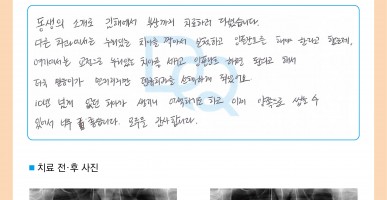 동생의 소개로 김해에서 부산까지 치료하러 다녔습니다.
다른 치과에서는 누워있는 치아를 깎아서 신경치료하고 임플란트를 해야 한다고 했는데,
여기에서는 교정으로 누워있는 치아를 세우고 임플란트 하면 된다고 해서
더욱 믿음이 인지가지만 되어
10년 넘게 없던 치아가 생겨서 어색하기도 하고 이제 양쪽으로 씹을 수
있어서 너무 좋습니다. 모두들 감사합니다.
■ 치료 전·후 사진